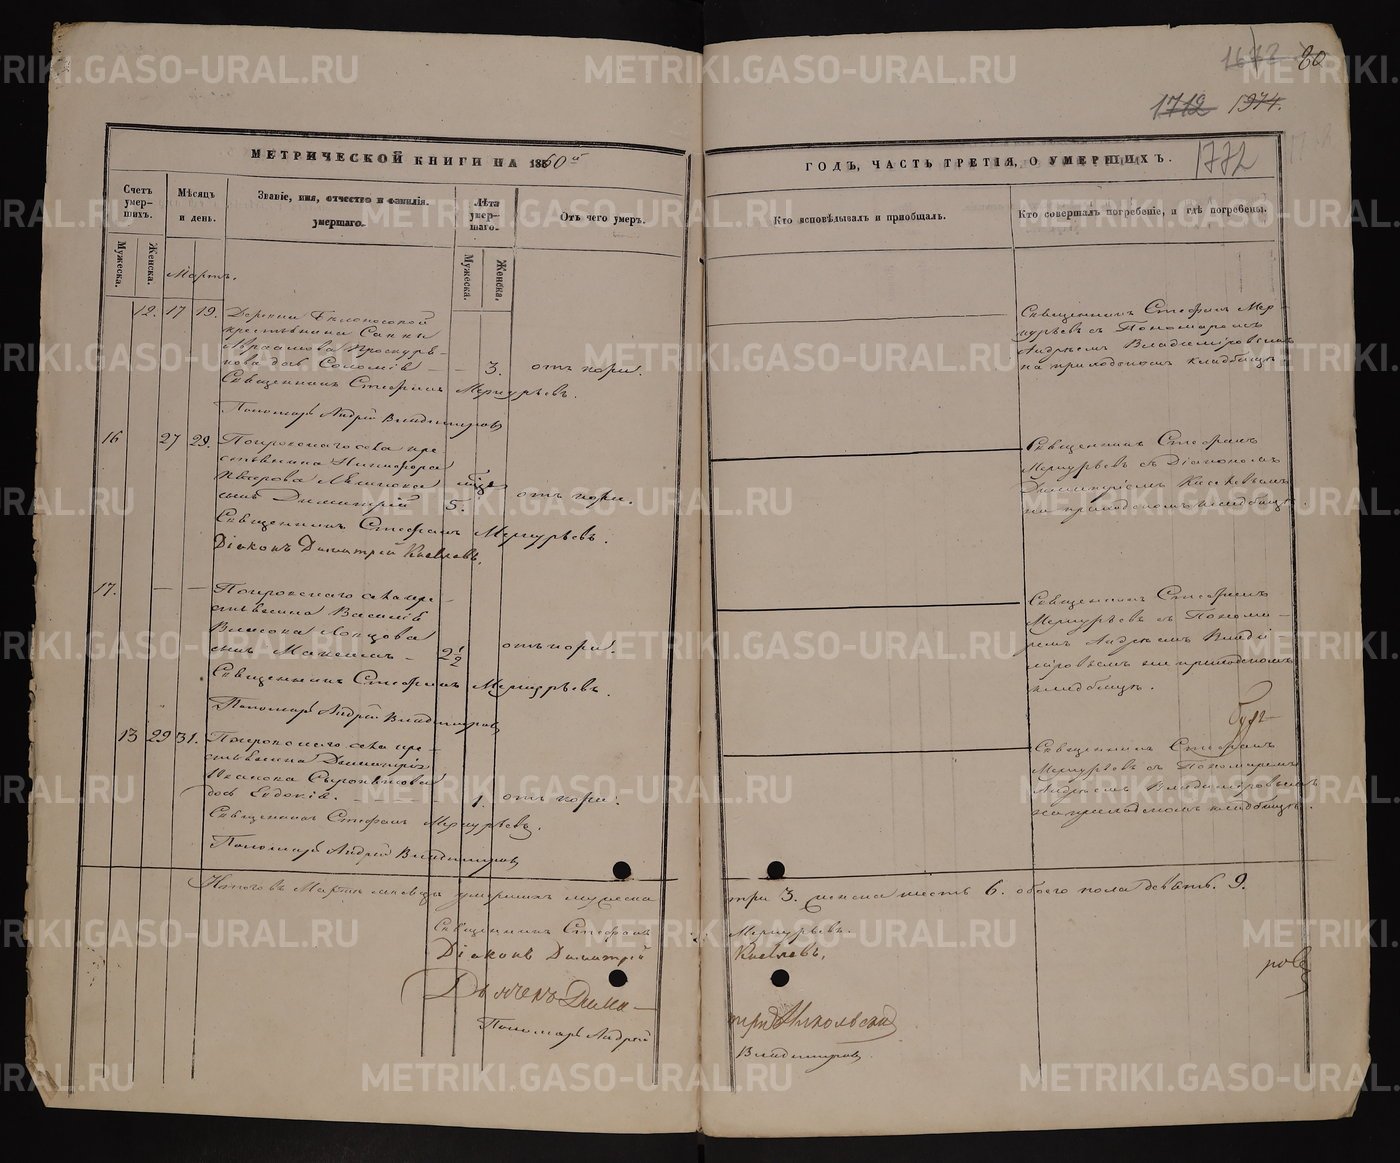 1672 80
1712 1974.
МЕТРИЧЕСКОЙ КНИГИ НА 1860й
ГОДЪ, ЧАСТЬ ТРЕТІЯ, О УМЕРШИХЪ.
1772
Счетъ умер-шихъ.
Мѣсяцъ и день.
Званіе, имя, отчество и фамилія умершаго.
Лѣта умер-шаго.
Отъ чего умеръ.
Кто исповѣдывалъ и пріобщалъ.
Кто совершалъ погребеніе, и гдѣ погребены.
Мужеска.
Женска.
Мартъ.
Мужеска.
Женска.
12. 17 19. Деревни
крестьянина Саввы
Авраамова
дочь Соломія 3. отъ кори.
Священникъ Стефанъ Меркурьевъ.
Пономарь Андрей Владимировъ
Священникъ Стефанъ Мер-
курьевъ съ Пономаремъ
Андреемъ Владимировымъ
на приходскомъ кладбищѣ
16 27 29. Покровскаго села кре-
стьянина Никифора
сынъ Димитрій 5. отъ кори.
Священникъ Стефанъ Меркурьевъ.
Діаконъ Димитрій Киселевъ.
Священникъ Стефанъ
Меркурьевъ съ Діакономъ
Димитріемъ Киселевымъ
на приходскомъ кладбищѣ.
17. — — Покровскаго села кре-
стьянина Василія
Власова
сынъ Максимъ - 2 1/2 отъ кори.
Священникъ Стефанъ Меркурьевъ.
Пономарь Андрей Владимировъ
Священникъ Стефанъ
Меркурьевъ съ Понома-
ремъ Андреемъ Влади
міровымъ на приходскомъ
кладбищѣ.
13 29 31. Покровскаго села кре-
стьянина Димитрія
Иванова
дочь Евдокія. 1. отъ кори.
Священникъ Стефанъ Меркурьевъ.
Пономарь Андрей Владимировъ
Священникъ Стефанъ
Меркурьевъ съ Пономаремъ
Андреемъ Владимировымъ
на приходскомъ кладбищѣ.
Итого въ Мартѣ мѣсяцѣ умершихъ мужеска
три 3. женска шесть 6. обоего пола девять. 9.
Священникъ Стефанъ Меркурьевъ.
Діаконъ Димитрій Киселевъ.
Дьячекъ Дими-
трій Никольскій
Пономарь Андрей Владимировъ.
METRIKI.GASO-URAL.RU